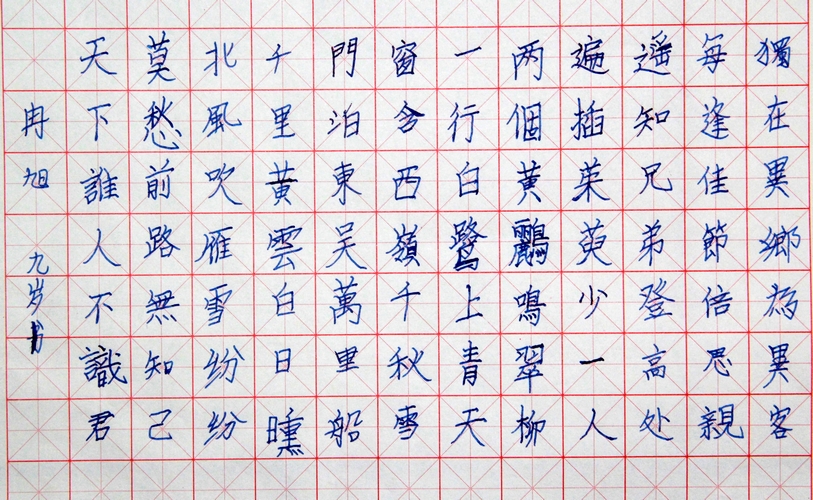 獨在異鄉為異客
每逢佳節倍思親
遥知兄弟登高处
遍插茱萸少一人
两個黄鸝鳴翠柳
一行白鷺上青天
窗含西嶺千秋雪
門泊東吴萬里船
千里黄雲白日曛
北風吹雁雪纷纷
莫愁前路無知己
天下誰人不識君
冉旭 九岁书